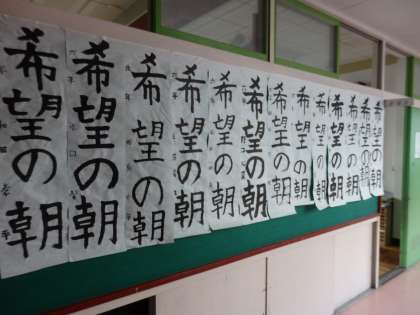 希望の朝
希望の朝
希望の朝
希望の朝
希望の朝
希望の朝
希望の朝
希望の朝
希望の朝
希望の朝
希望の朝
希望の朝
希望の朝